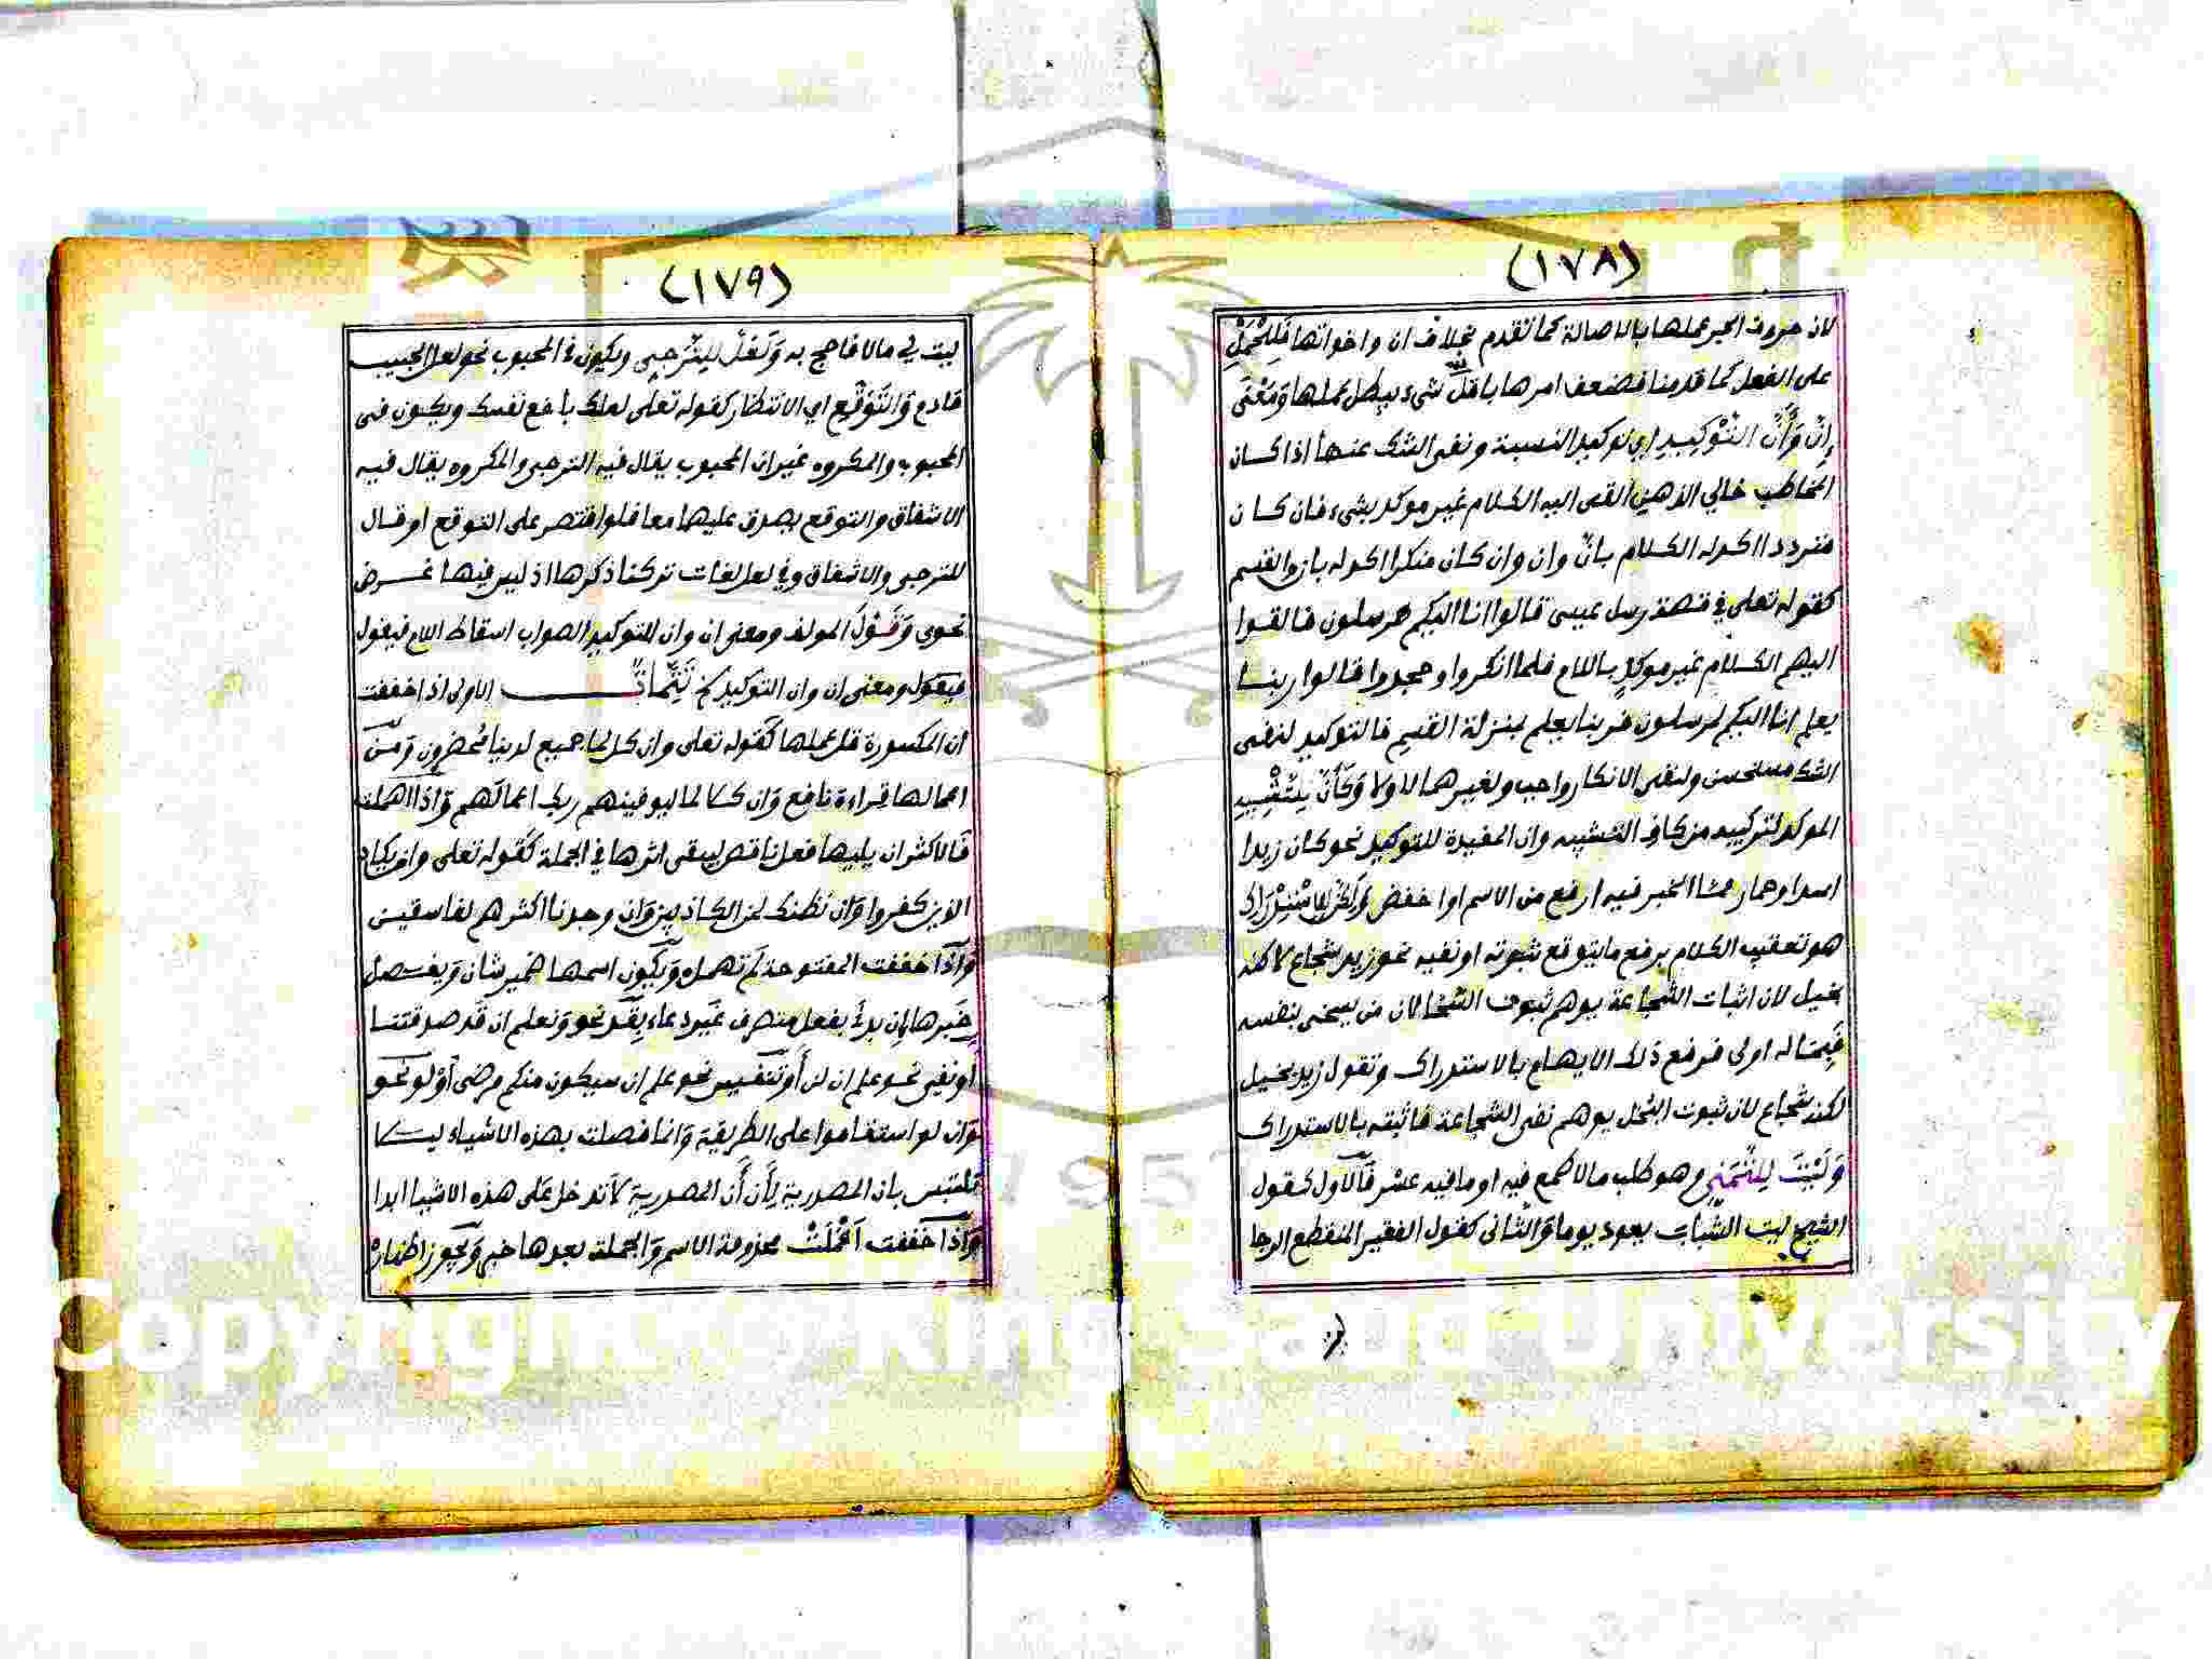 (١٧٨)
لان حروف الجر عملها بالاصالة كما تقدم بخلاف ان واخواتها فللحمل
على الفعل كما قدمنا فضعف امرها باقل شيء يبطل عملها وَمَعْنَى
إِنَّ وَأَنَّ التَّوْكِيدِ اي توكيد النسبة ونفى الشك عنها اذا كان
المخاطب خالي الذهن القى اليه الكلام غير موكد بشيء فان كان
مترددا اكد له الكلام بانّ وان وان كان منكرا اكد له بان والقسم
كقوله تعلى في قصة رسل عيسى قالوا انا اليكم مرسلون فالقوا
اليهم الكلام غير موكد باللام فلما انكروا وجحدوا قالوا ربنا
يعلم انا اليكم لمرسلون فربنا يعلم بمنزلة القسم فالتوكيد لنفى
الشك مستحسن ولنفى الانكار واجب ولغيرهما لا ولا وَكَأَنَّ لِلتَّشْبِيهِ
الموكد لتركيبه من كاف التشبيه وان المفيدة للتوكيد نحو كان زيدا
اسد او حمار مما الخبر فيه ارفع من الاسم او اخفض وَلَكِنَّ لِلِاسْتِدْرَاكِ
هو تعقيب الكلام برفع ما يتوقع ثبوته او نفيه نحو زيد شجاع لاكنه
بخيل لان اثبات الشجاعة يوهم ثبوت السخا لان من يسخى بنفسه
فبماله اولى فرفع ذلك الايهام بالاستدراك وتقول زيد بخيل
لكنه شجاع لان ثبوت البخل يوهم نفى الشجاعة فاثبته بالاستدراك
وَلَيْتَ لِلتَّمَنِّي وهو طلب ما لا طمع فيه او ما فيه عسر فالاول كقول
الشيخ ليت الشباب يعود يوما والثاني كقول الفقير المنقطع الرجا
(١٧٩)
ليت لي مالا فاحج به وَلَعَلَّ لِلتَّرَجِّي ويكون في المحبوب نحو لعل الحبيب
قادم وَالتَّوَقُّعِ اي الانتظار كقوله تعلى لعلك باخع نفسك ويكون فى
المحبوب والمكروه غير ان المحبوب يقال فيه الترجى والمكروه يقال فيه
الاشفاق والتوقع يصدق عليهما معا فلو اقتصر على التوقع او قال
للترجى والاشفاق وفي لعل لغات تركنا ذكرها اذ ليس فيها غرض
نحوى وَقَوْلُ المولف ومعنى ان وان للتوكيد الصواب اسقاط اللام فيقول
فيقول ومعنى ان وان التوكيد تَتِمَّاتٌ الاولى اذا خففت
ان المكسورة قل عملها كقوله تعلى وان كل لما جميع لدينا محضرون وَمن
اعمالها قراءة نافع وان كلا لما ليوفينهم ربك اعمالهم واذا اهملت
فالاكثر ان يليها فعل ناقص ليبقى اثرها في الجملة كقوله تعلى وان يكاد
الذين كفروا وان نظنك لمن الكاذبين وان وجدنا اكثرهم لفاسقين
وَاذا خففت المفتوحة لم تهمل ويكون اسمها ضمير شان ويفصل
خبرها ان بدئ بفعل متصرف غير دعاء بقد نحو ونعلم ان قد صدقتنا
او نفي نحو علم ان لن او تنفيس نحو علم ان سيكون منكم مرضى أَوْ لو نحو
وان لو استقاموا على الطريقة وانما فصلت بهذه الاشياء ليلا
تلتبس بان المصدرية لِأَن أَن المصدرية لا تدخل على هذه الاشيا ابدا
وَاذا خففت اعملت محذوفة الاسم والجملة بعدها خبر ويجوز اظهاره
Copyright © King Saud University
1957